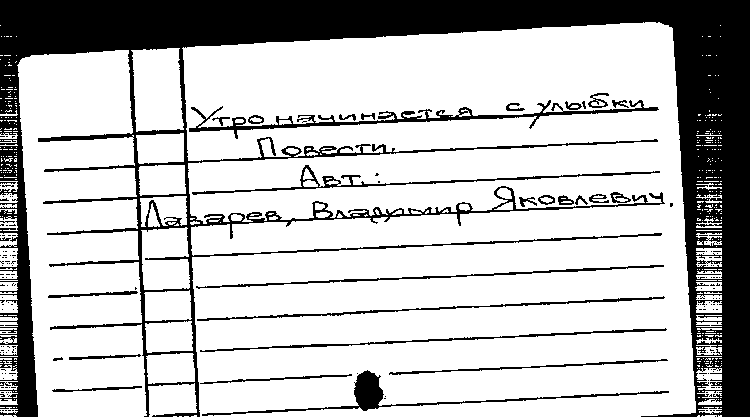 Утро начинается с улыбки
Повести.
Авт.:
Лазарев, Владимир Яковлевич.